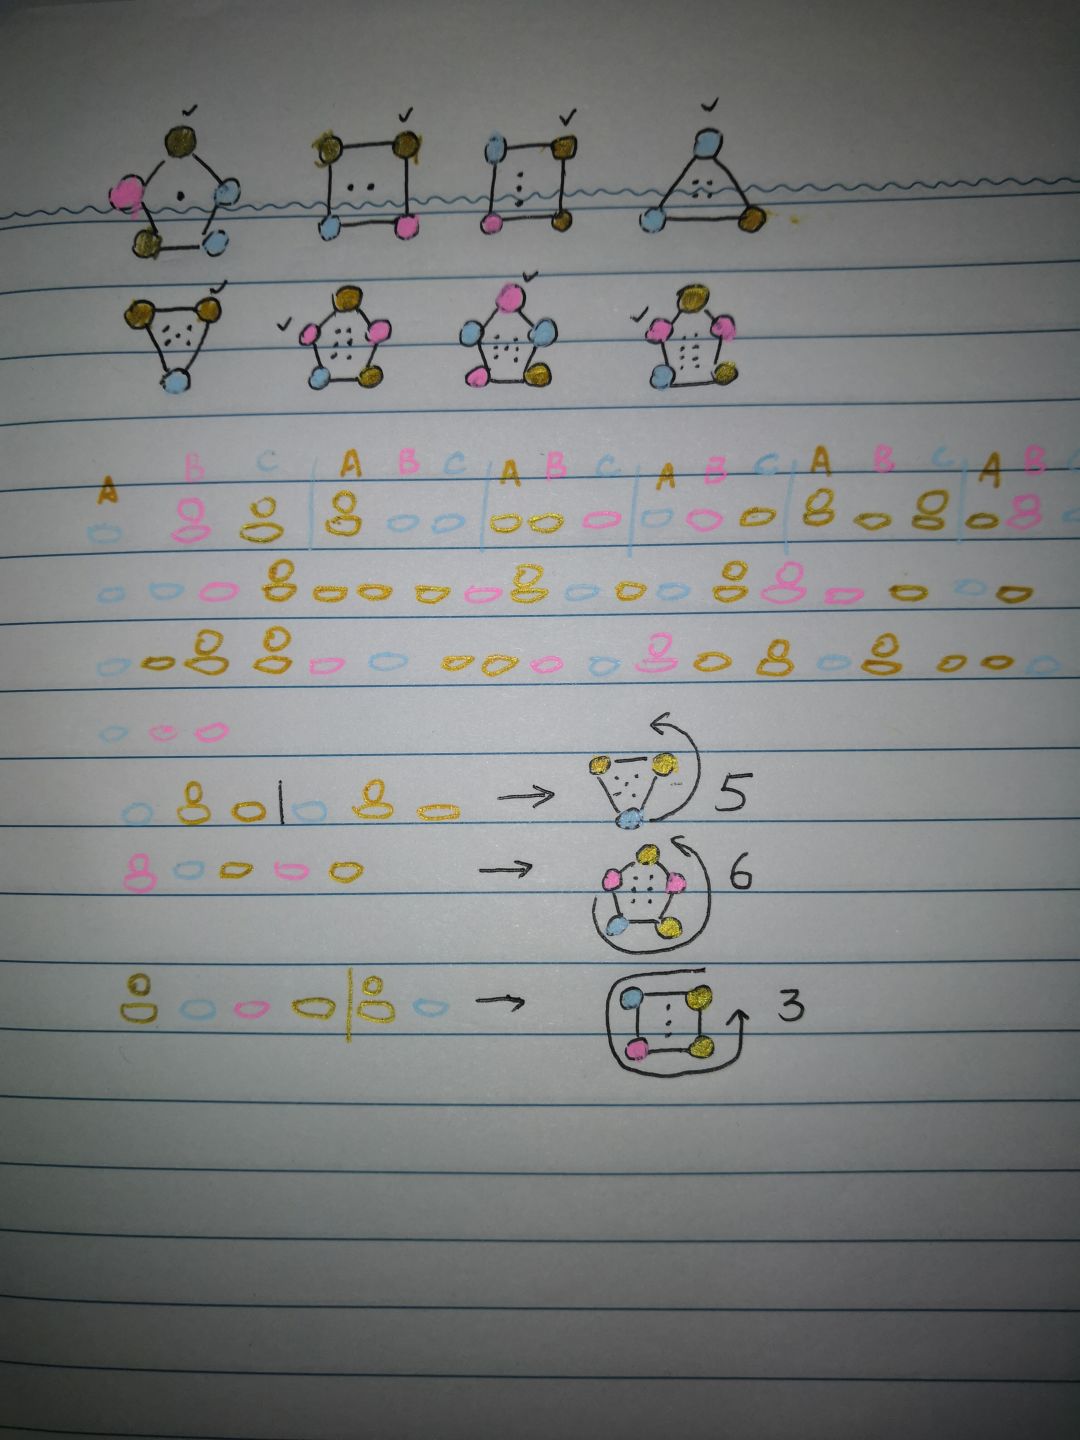 A B C A B C A B C A B C A B C A B C
5
6
3